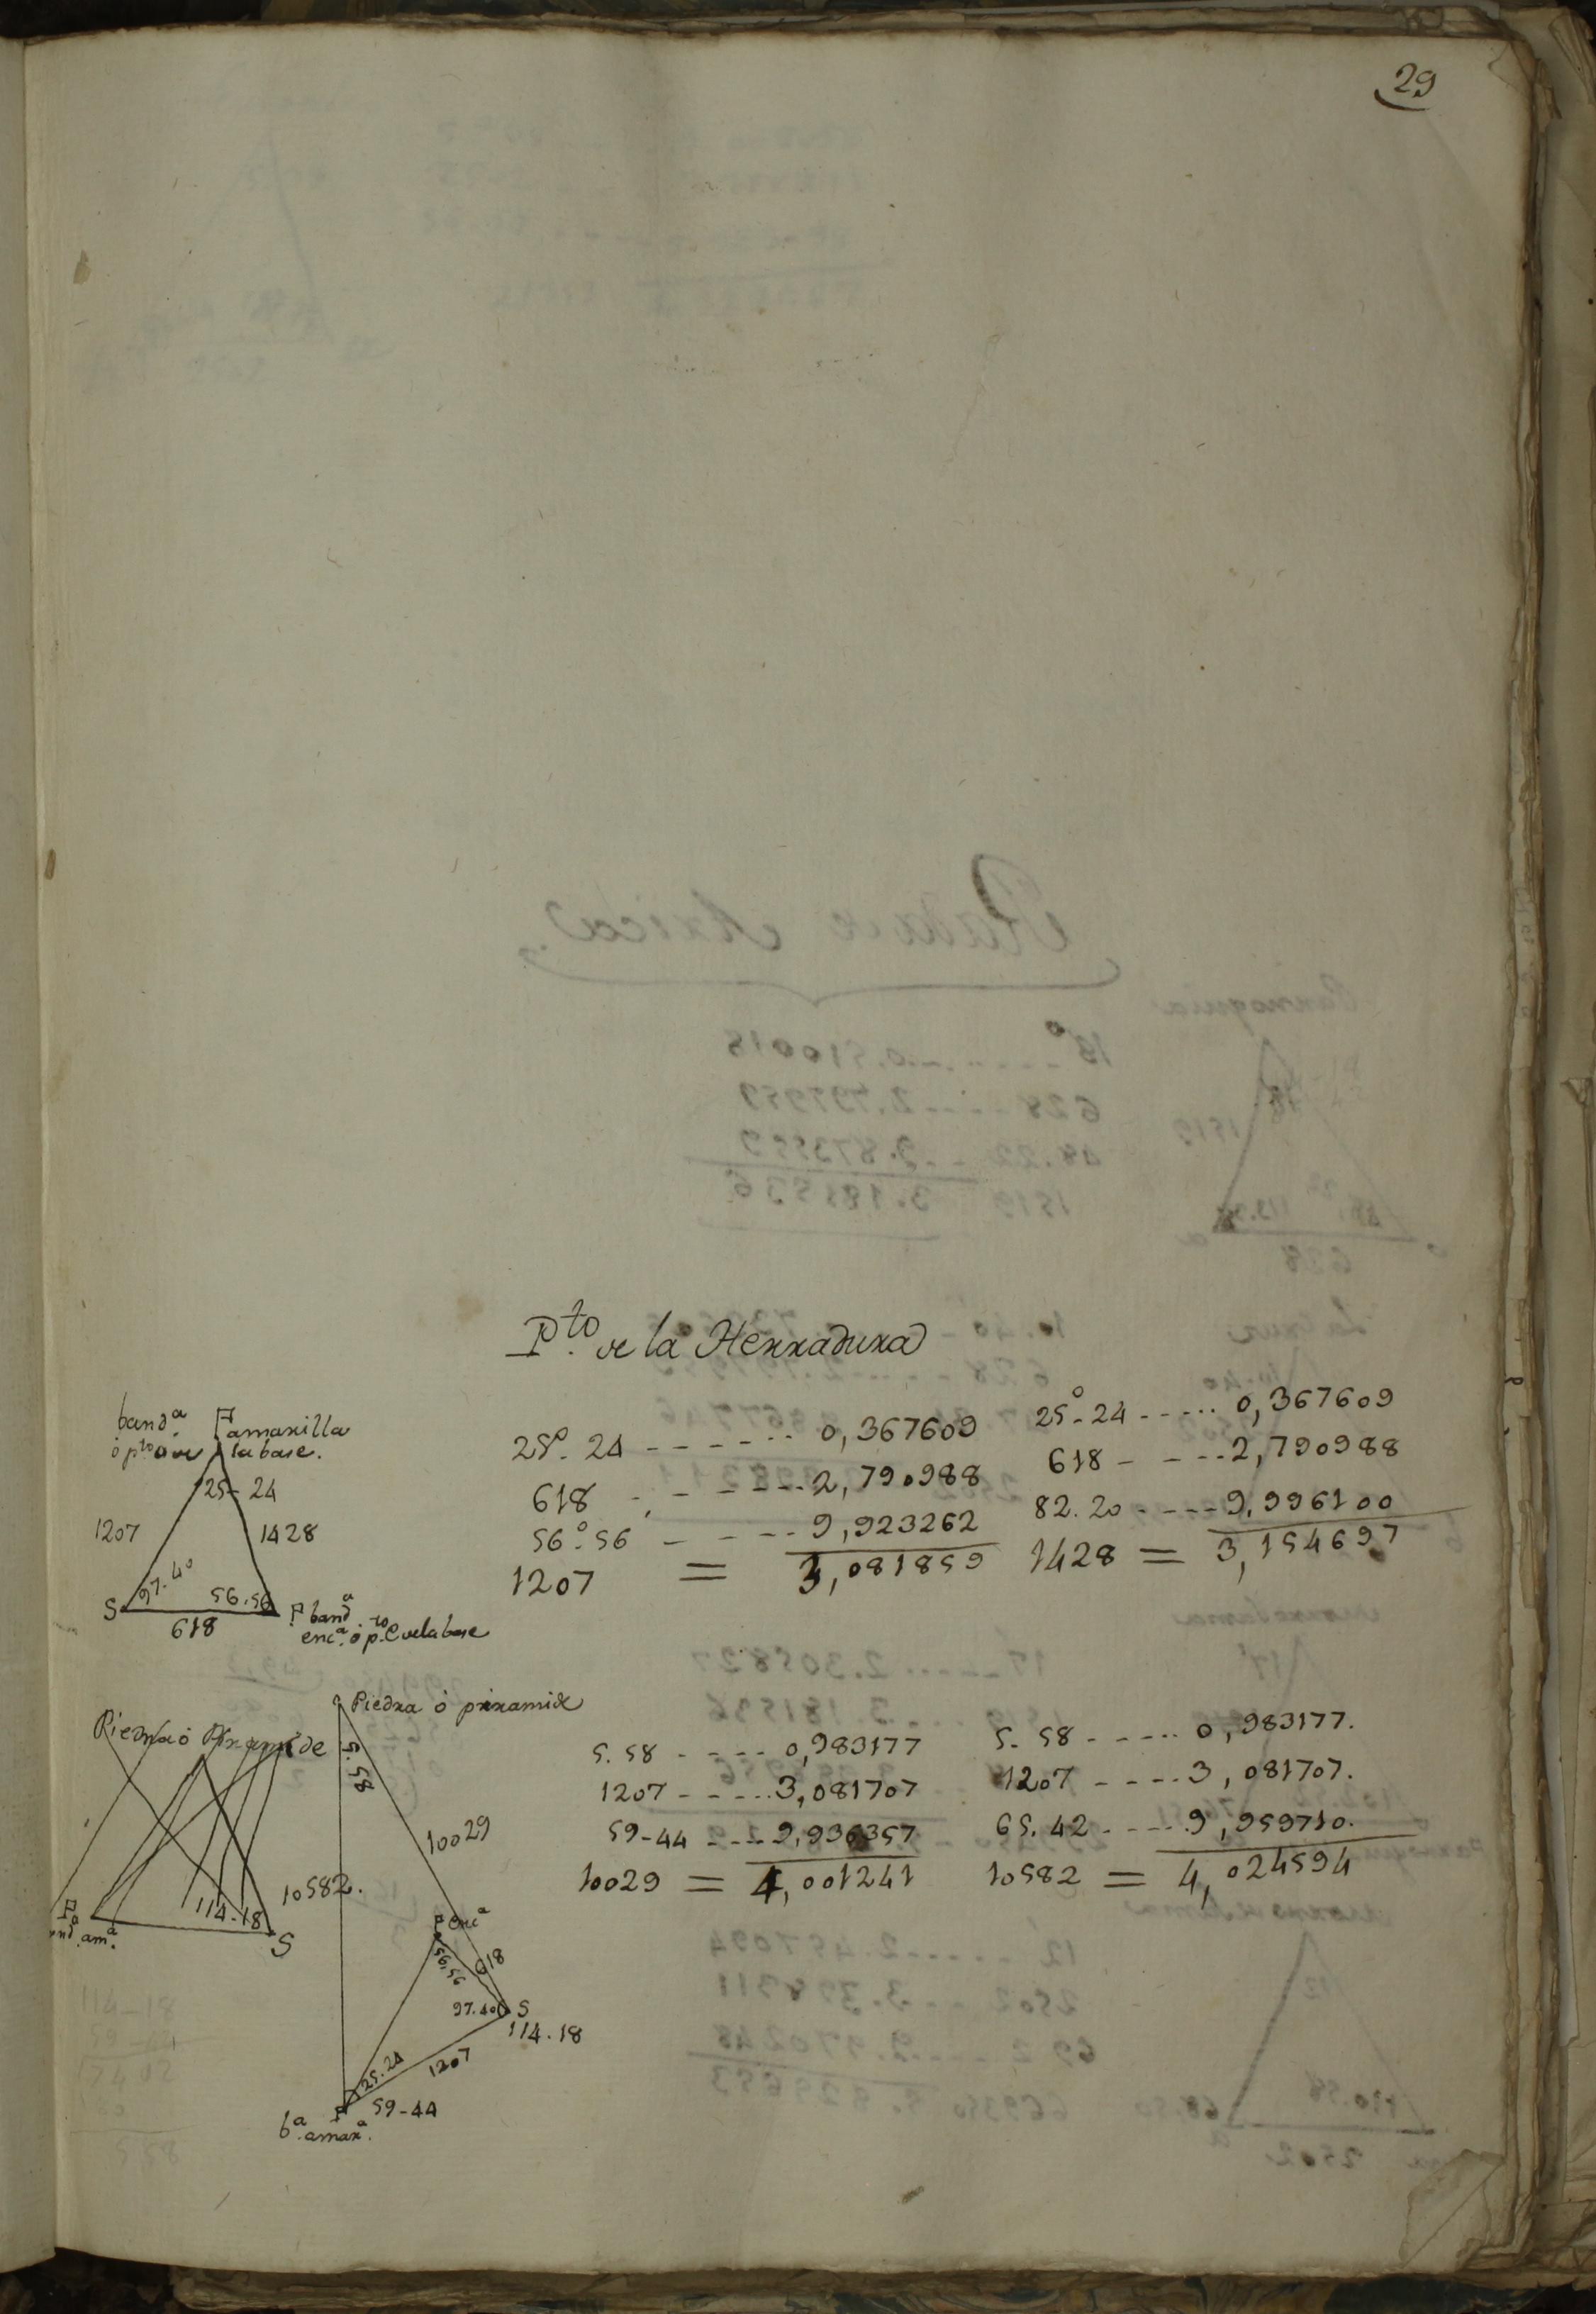 29
Pto. de la Herradura
band.a amarilla
ó pto la base.
25-24
1207
1428
97.40
56.56
S
618
band.a
enc.a ó p.to C de la base
25°. 24 - - - - - - - 0,367609
618 - - - - - - 2,790988
56°. 56 - - - - - 9,923262
1207 = 3,081859
25°-24 - - - - - 0,367609
618 - - - - - 2,790988
82.20 - - - - 9,996100
1428 = 3,154697
Piedra ó Piramide
114-18
S
am.a
Piedra ó piramide
5.58
10029
10582.
enc.a
56.56
618
97.40
S
114.18
25.24
1207
59-44
b.a amar.a
5.58 - - - - - 0,983177
1207 - - - - - 3,081707
59-44 - - - - 9,936357
10029 = 4,001241
5.58 - - - - - 0,983177.
1207 - - - - 3,081707.
65.42 - - - - 9,959710.
10582 = 4,024594
114-18